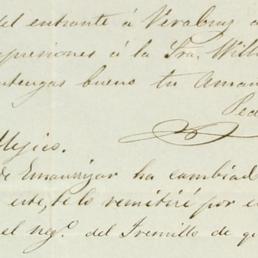 del entrante á Veracruz
presiones á la Sra. Will
tengas bueno tu aman
Ped
Mejico.
de Emanrrizar ha cambiad
este, te lo remitiré por e
el negº. del Tremillo de q